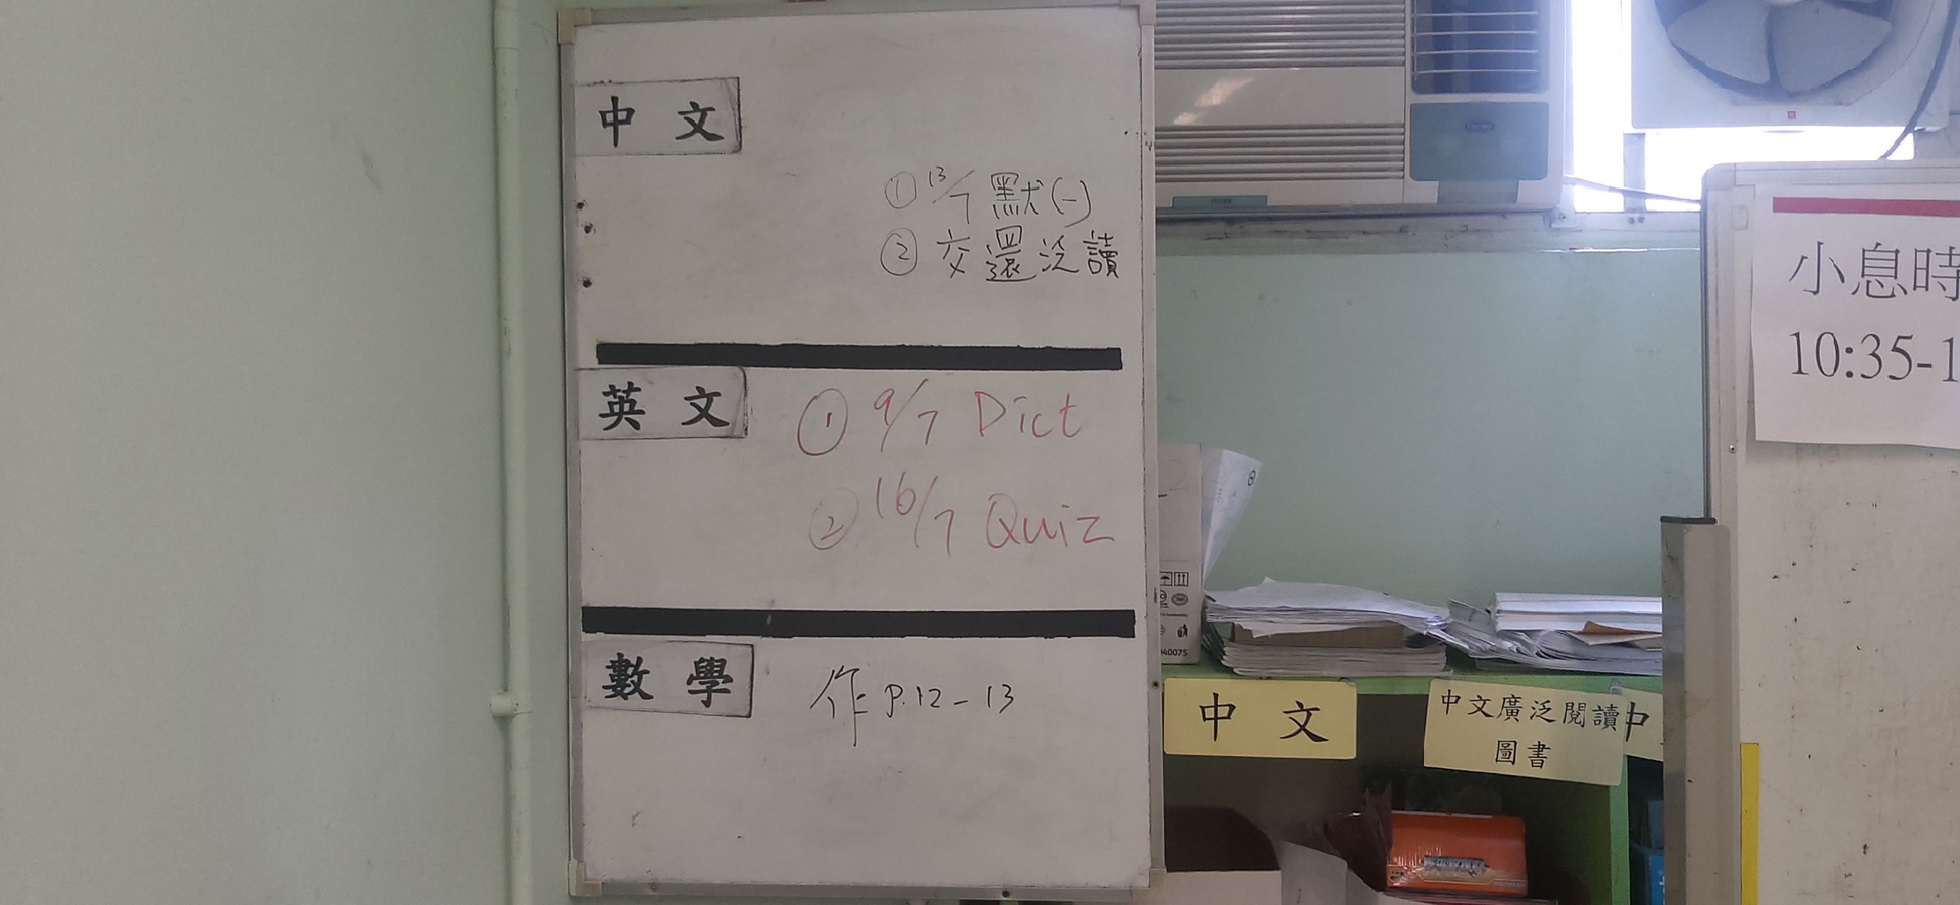 中文
① 13/7 默(一)
② 交還泛讀
英文
① 9/7 Dict
② 16/7 Quiz
數學
作 P.12-13
小息時
10:35-1
中文
中文廣泛閱讀
圖書
中